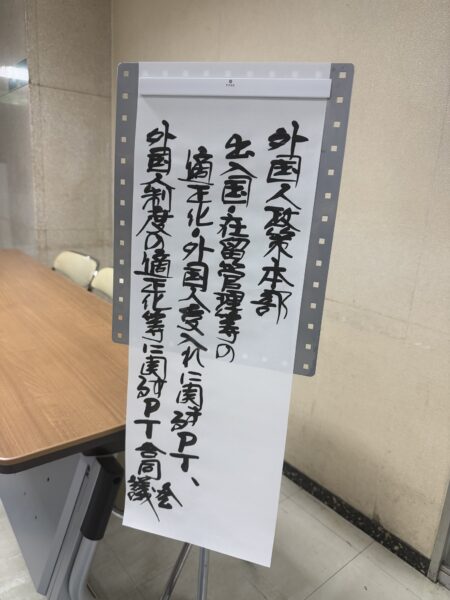 外国人政策本部
出入国・在留管理等の
適正化・外国人受入れに関するPT、
外国人制度の適正化等に関するPT合同会議